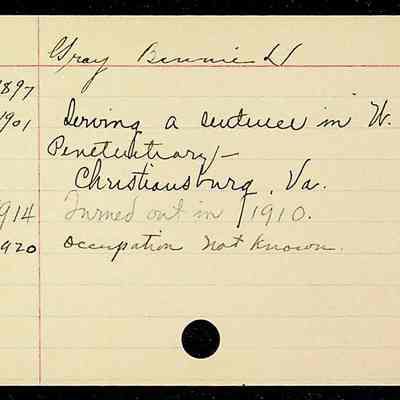 Gray Bennie H
1897
1901 Serving a sentence in W.
Penetentiary –
Christiansburg, Va.
1914 Turned out in 1910.
1920 Occupation not known.